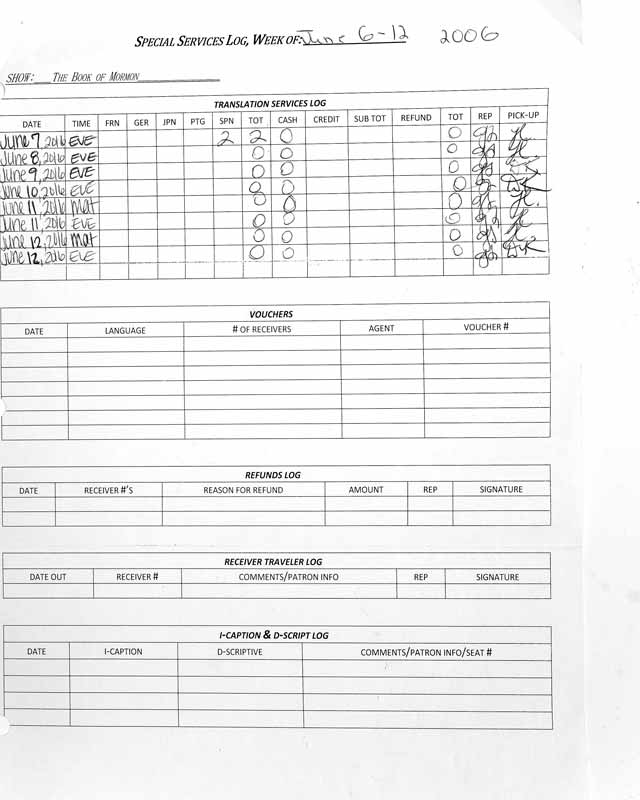 SPECIAL SERVICES LOG, WEEK OF: June 6-12 2006
SHOW: THE BOOK OF MORMON
TRANSLATION SERVICES LOG
DATE TIME FRN GER JPN PTG SPN TOT CASH CREDIT SUB TOT REFUND TOT REP PICK-UP
June 7, 2016 EVE 2 2 0 0
June 8, 2016 EVE 0 0 0
June 9, 2016 EVE 0 0 0
June 10, 2016 EVE 0 0 0
June 11, 2016 Mat 0 0 0
June 11, 2016 EVE 0 0 0
June 12, 2016 Mat 0 0 0
June 12, 2016 EVE 0 0 0
VOUCHERS
DATE LANGUAGE # OF RECEIVERS AGENT VOUCHER #
REFUNDS LOG
DATE RECEIVER #'S REASON FOR REFUND AMOUNT REP SIGNATURE
RECEIVER TRAVELER LOG
DATE OUT RECEIVER # COMMENTS/PATRON INFO REP SIGNATURE
I-CAPTION & D-SCRIPT LOG
DATE I-CAPTION D-SCRIPTIVE COMMENTS/PATRON INFO/SEAT #